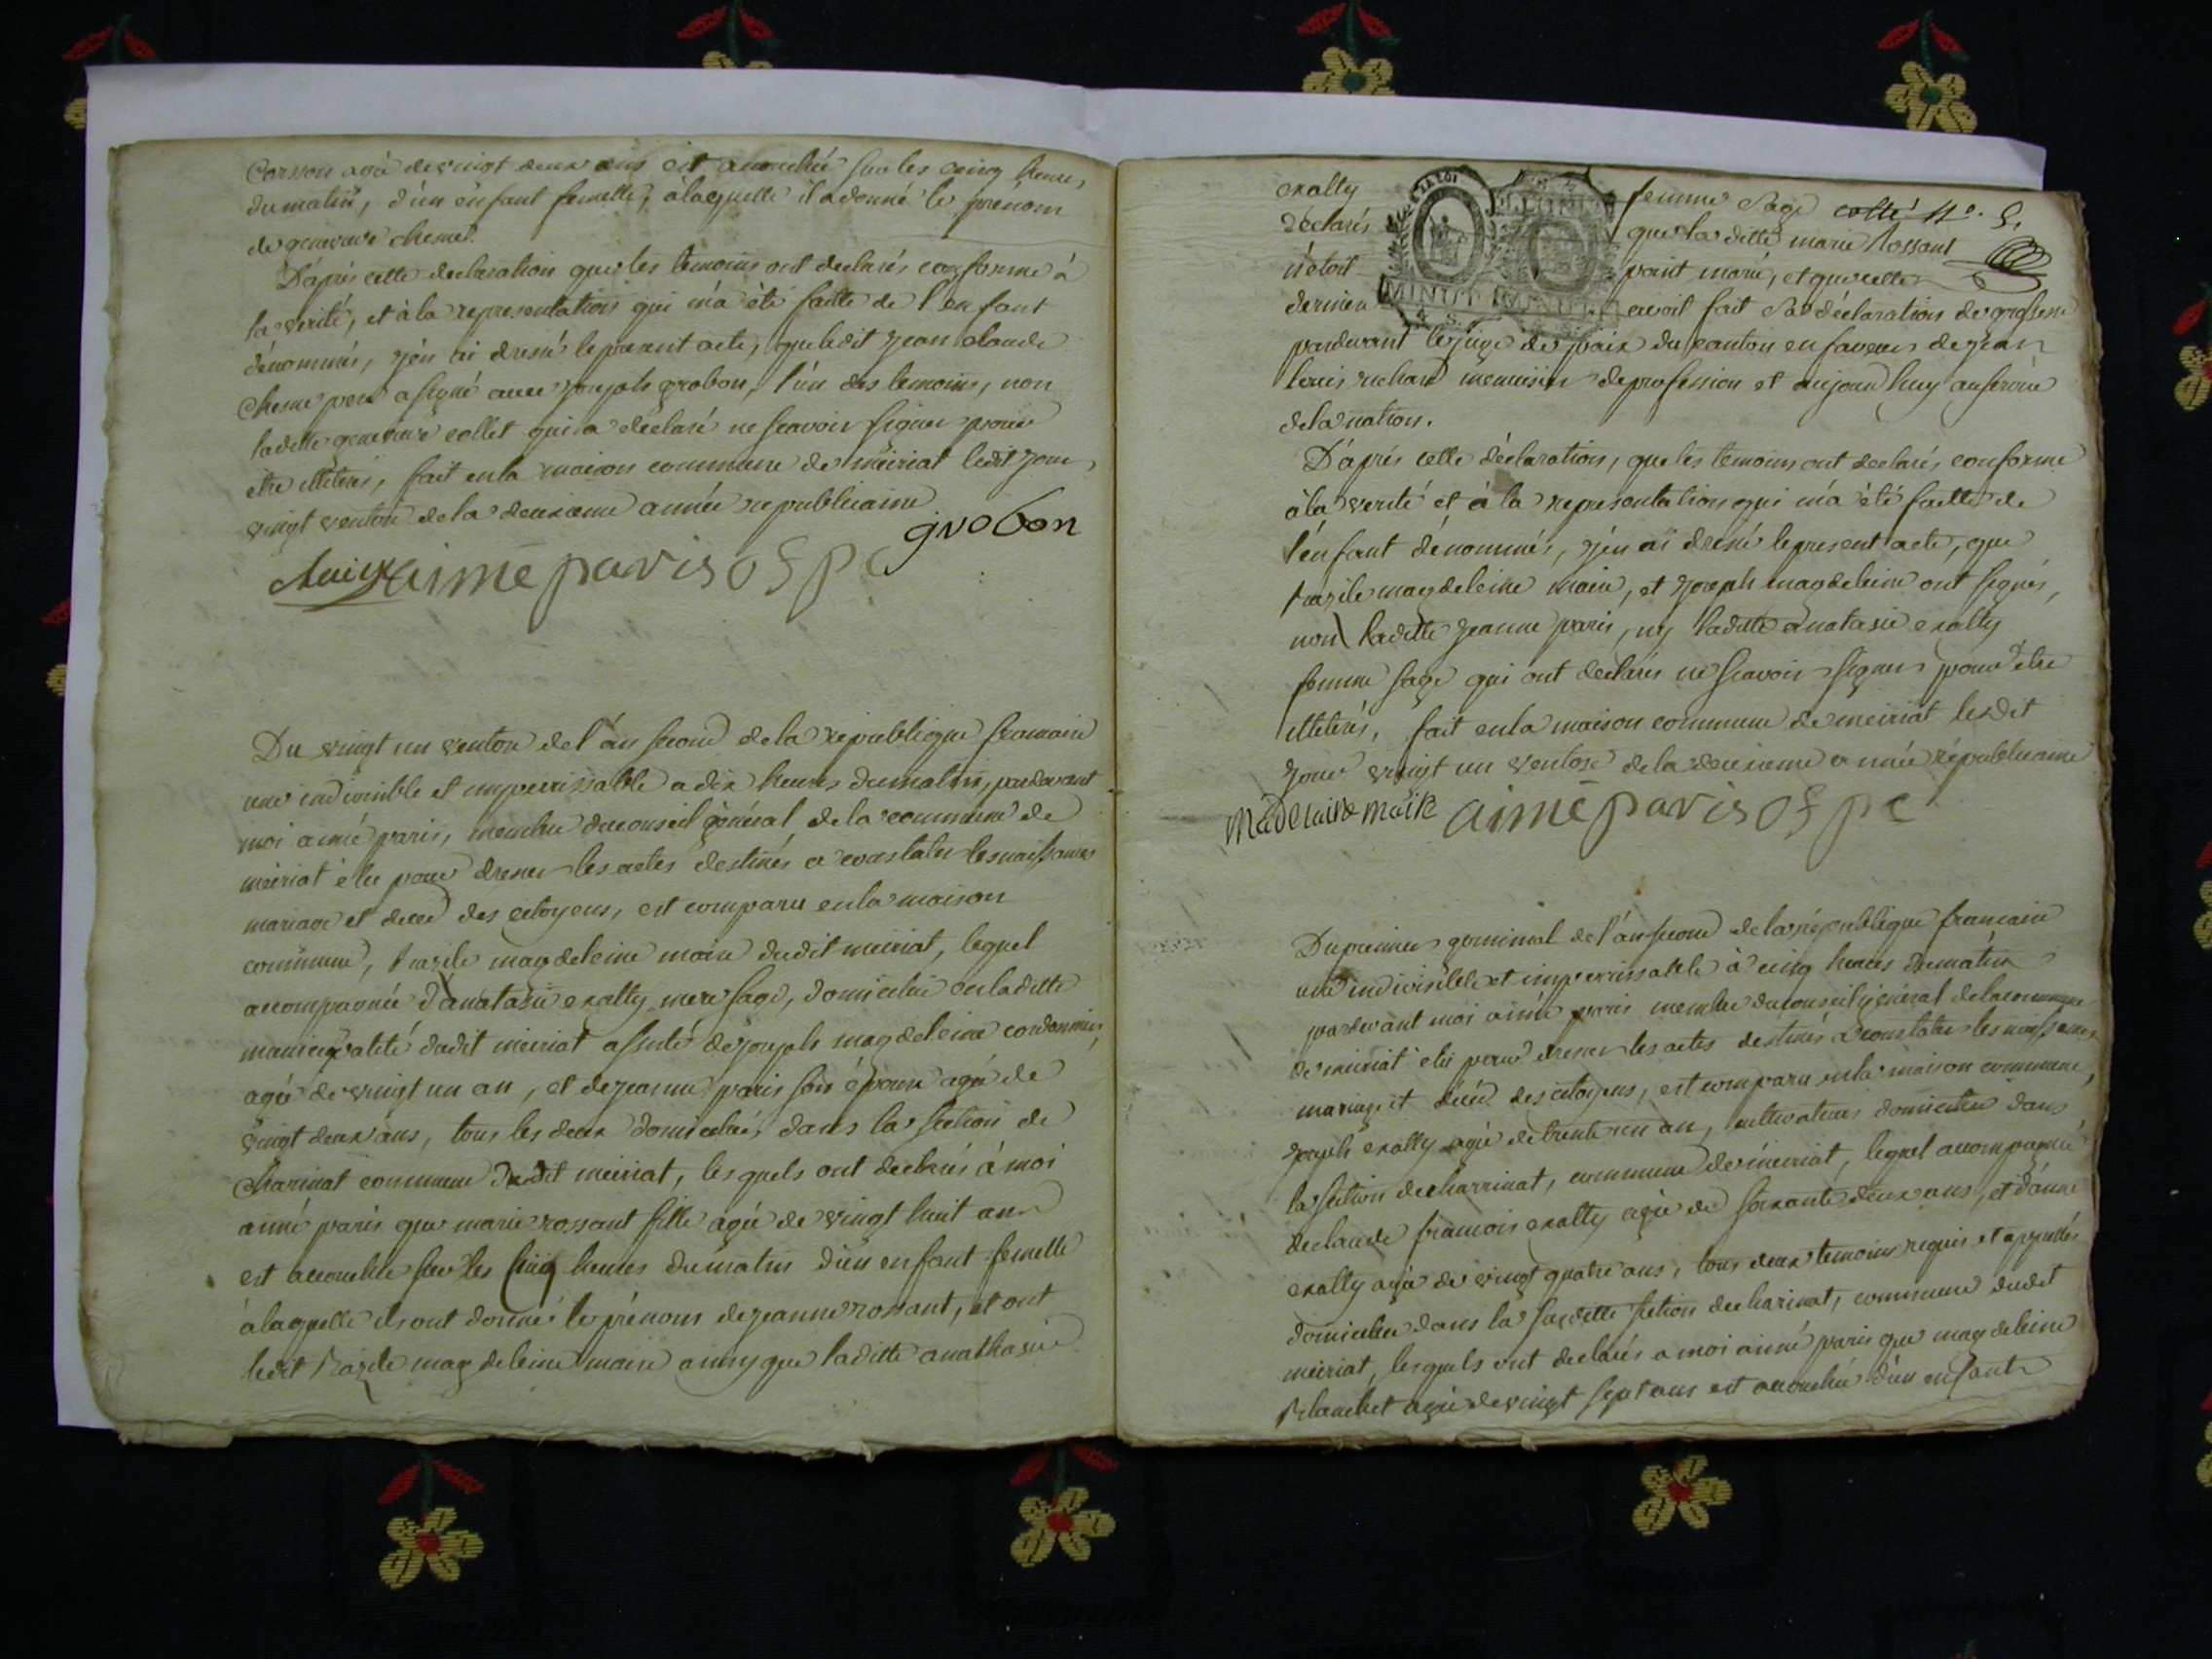 Corsson agé de vingt deux ans est accouchée sur les cinq heures
du matin, d'un enfant femelle, à laquelle il a donné le prénom
de genevieve chesne.
D'aprés cette declaration que les temoins ont declarés conforme à
la verité, et à la representation qui m'a été faitte de l'enfant
dénommés, j'en ai dressé le present acte, que ledit jean claude
chesne pere a signé avec joseph grobon, l'un des temoins, non
laditte genevieve collet qui a déclaré ne scavoir signer pour
être illeterés, fait en la maison commune de meiriat ledit jour
vingt ventose de la deuxieme année republicaine
grobon
aimé paris o f p c
Du vingt un ventose de l'an second de la république francaise
une indivisible et imperrissable a dix heures du matin, pardevant
moi aimé paris, membre du conseil général de la commune de
meiriat élu pour dresser les actes destinés a constater les naissances
mariage et décé des citoyens, est comparu en la maison
commune, bazile magdeleine maire dudit meiriat, lequel
accompagnée d'anatasie exalty mere sage, domiciliée en laditte
municipalité dudit meiriat assisté de joseph magdeleine cordonnier,
agé de vingt un an, et de jeanne paris son épouse agé de
vingt deux ans, tous les deux domiciliés dans la section de
charinat commune dudit meiriat, lesquels ont declarés à moi
aimé paris que marie rossant fille agée de vingt huit ans
est accouchée sur les cinq heures du matin d'un enfant femelle
à laquelle ils ont donnés le prénom de jeanne rossant, et ont
ledit bazile magdeleine maire ainsy que laditte anathasie
exalty femme sage cotté n°. 5.
déclarés que la ditte marie rossant
n'étoit point marié, et que cette
derniere avoit fait sa déclaration de grossesse
pardevant le juge de paix du canton en faveur de jean
louis richard menuisier de profession et aujourd'huy au service
de la nation.
D'aprés cette déclaration, que les temoins ont declarés conforme
à la verité et à la representation qui m'a été faitte de
l'enfant dénommés, j'en ai dressé le present acte, que
bazile magdeleine maire, et joseph magdeleine ont signés,
non laditte jeanne paris, ny laditte anatasie exalty
femme sage qui ont declarés ne scavoir signer pour être
illeterés, fait en la maison commune de meiriat lesdit
jour vingt un ventose de la deuxieme année républicaine
Madelaine maire aimé paris o f p c
Du premier germinal de l'an second de la république francaise
une indivisible et imperrissable à cinq heures du matin
pardevant moi aimé paris membre du conseil général de la commune
de meiriat élu pour dresser les actes destinés à constater les naissances,
mariage et décé des citoyens, est comparu en la maison commune,
joseph exalty agé de trente un an, cultivateur domicilié dans
la section de charrinat, commune de meiriat, lequel accompagné
de claude francois exalty agé de soixante deux ans, et d'anne
exalty agée de vingt quatre ans, tous deux temoins requis et appellés
domiciliés dans la susditte section de charinat, commune dudit
meiriat, lesquels ont declarés a moi aimé paris que magdeleine
blanchet agée de vingt sept ans est accouchée d'un enfant